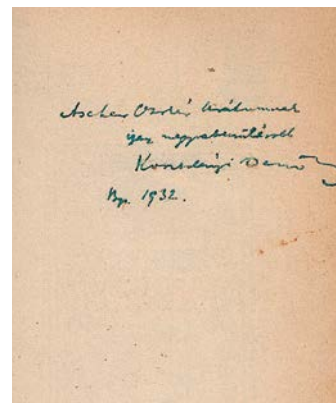 Ascher Oszkár barátomnak
igaz nagyrabecsüléssel
Kosztolányi Dezső
Bp. 1932.